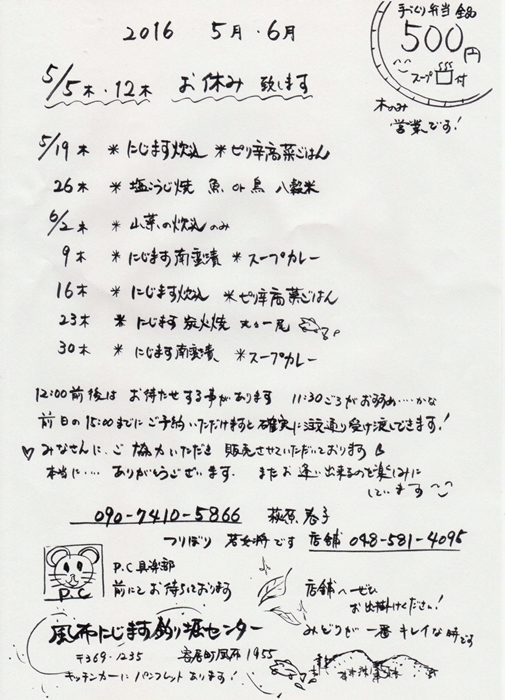 2016 5月・6月
手づくり弁当 全品
500円
スープ付
木のみ
営業です!
5/5木・12木 お休み致します
5/19木 *にじます炊込 *ピリ辛高菜ごはん
26木 *塩こうじ焼 魚 or 鳥 八穀米
6/2木 *山菜の炊込のみ
9木 *にじます南蛮漬 *スープカレー
16木 *にじます炊込 *ピリ辛高菜ごはん
23木 *にじます炭火焼 丸々一尾
30木 *にじます南蛮漬 *スープカレー
12:00前後は お待たせする事があります 11:30ごろがおすすめ…かな
前日の15:00までにご予約いただけますと確実に注文通り受け渡しできます!
♡みなさんに、ご協力いただき 販売させていただいております
本当に…ありがとうございます. またお逢い出来るのを楽しみに
しています
090-7410-5866 荻原
つりぼり 若女将です 店舗 048-581-4095
P.C
P.C倶楽部
前にてお待ちしております
店舗へぜひ
お出掛けください!
みどりが一番キレイな時です
風布にじます釣り堀センター
〒369-1235 寄居町風布1955
キッチンカーにパンフレットあります!